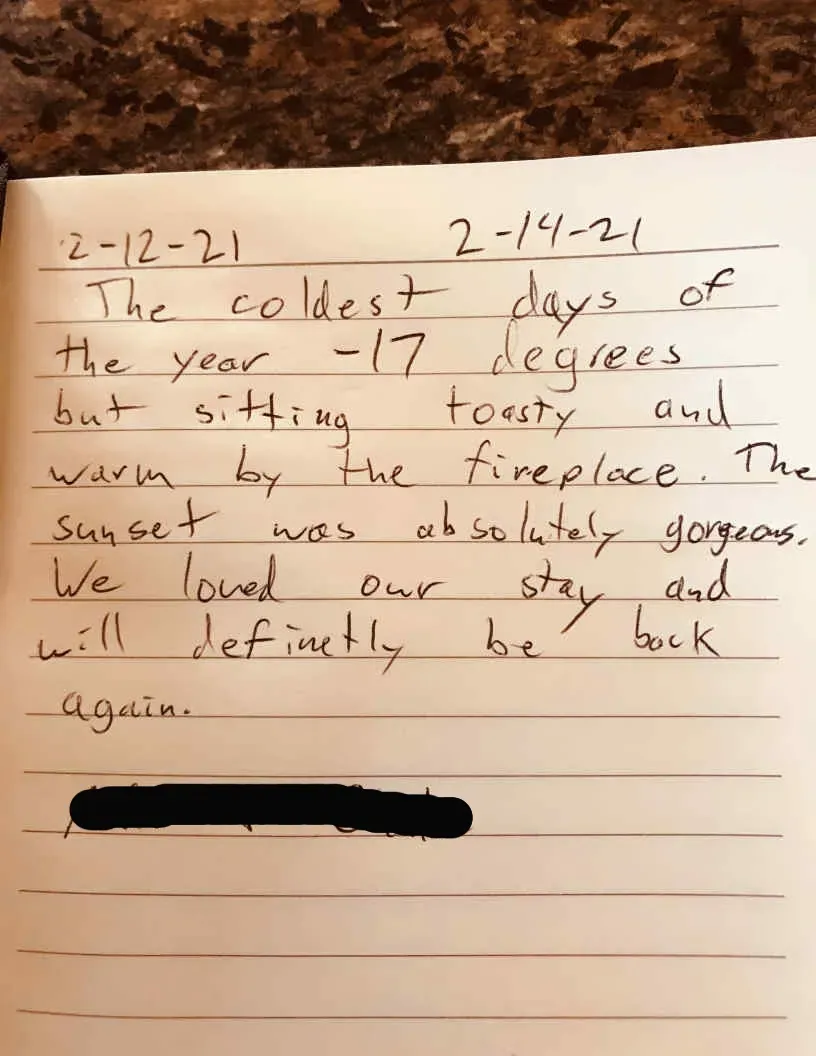 2-12-21 2-14-21
The coldest days of
the year -17 degrees
but sitting toasty and
warm by the fireplace. The
sunset was absolutely gorgeous.
We loved our stay and
will definetly be back
again.